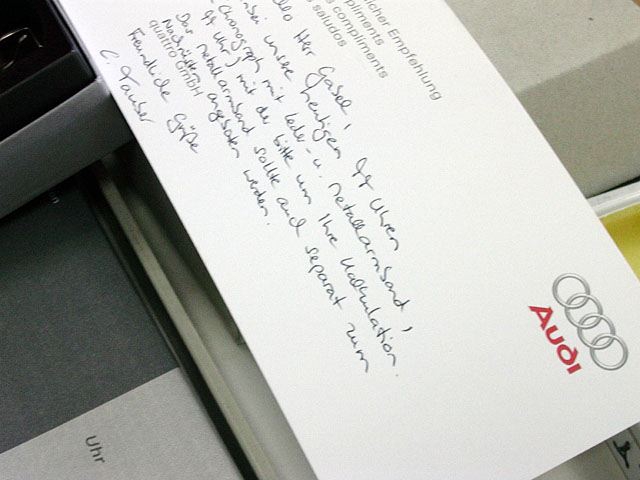 licher Empfehlung
pliments
s compliments
saludos
Herr Gabel,
unsere heutigen TT Uhren
Chronograph mit Leder- u. Metallarmband,
TT Uhr) mit der Bitte um Ihre Kalkulation.
Das Metallarmband sollte auch separat zum
Nachrüsten angeboten werden.
quattro GmbH
Freundliche Grüße
C.
Audi
Uhr